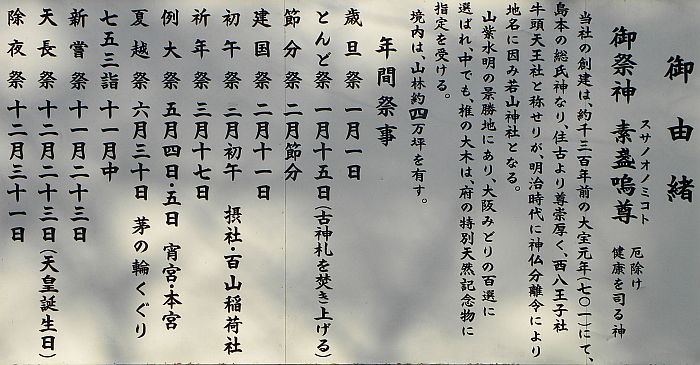 御由緒
御祭神 素盞嗚尊 スサノオノミコト 厄除け 健康を司る神
当社の創建は、約千三百年前の大宝元年(七〇一)にて、
島本の総氏神なり、住古より尊崇厚く、西八王子社
牛頭天王社と称せりが、明治時代に神仏分離令により
地名に因み若山神社となる。
山葉水明の景勝地にあり、大阪みどりの百選に
選ばれ、中でも、椎の大木は、府の特別天然記念物に
指定を受ける。
境内は、山林約四万坪を有す。
年間祭事
歳旦祭 一月一日
とんど祭 一月十五日(古神札を焚き上げる)
節分祭 二月節分
建国祭 二月十一日
初午祭 二月初午 摂社・百山稲荷社
祈年祭 三月十七日
例大祭 五月四日・五日 宵宮・本宮
夏越祭 六月三十日 茅の輪くぐり
七五三詣 十一月中
新嘗祭 十一月二十三日
天長祭 十二月二十三日(天皇誕生日)
除夜祭 十二月三十一日